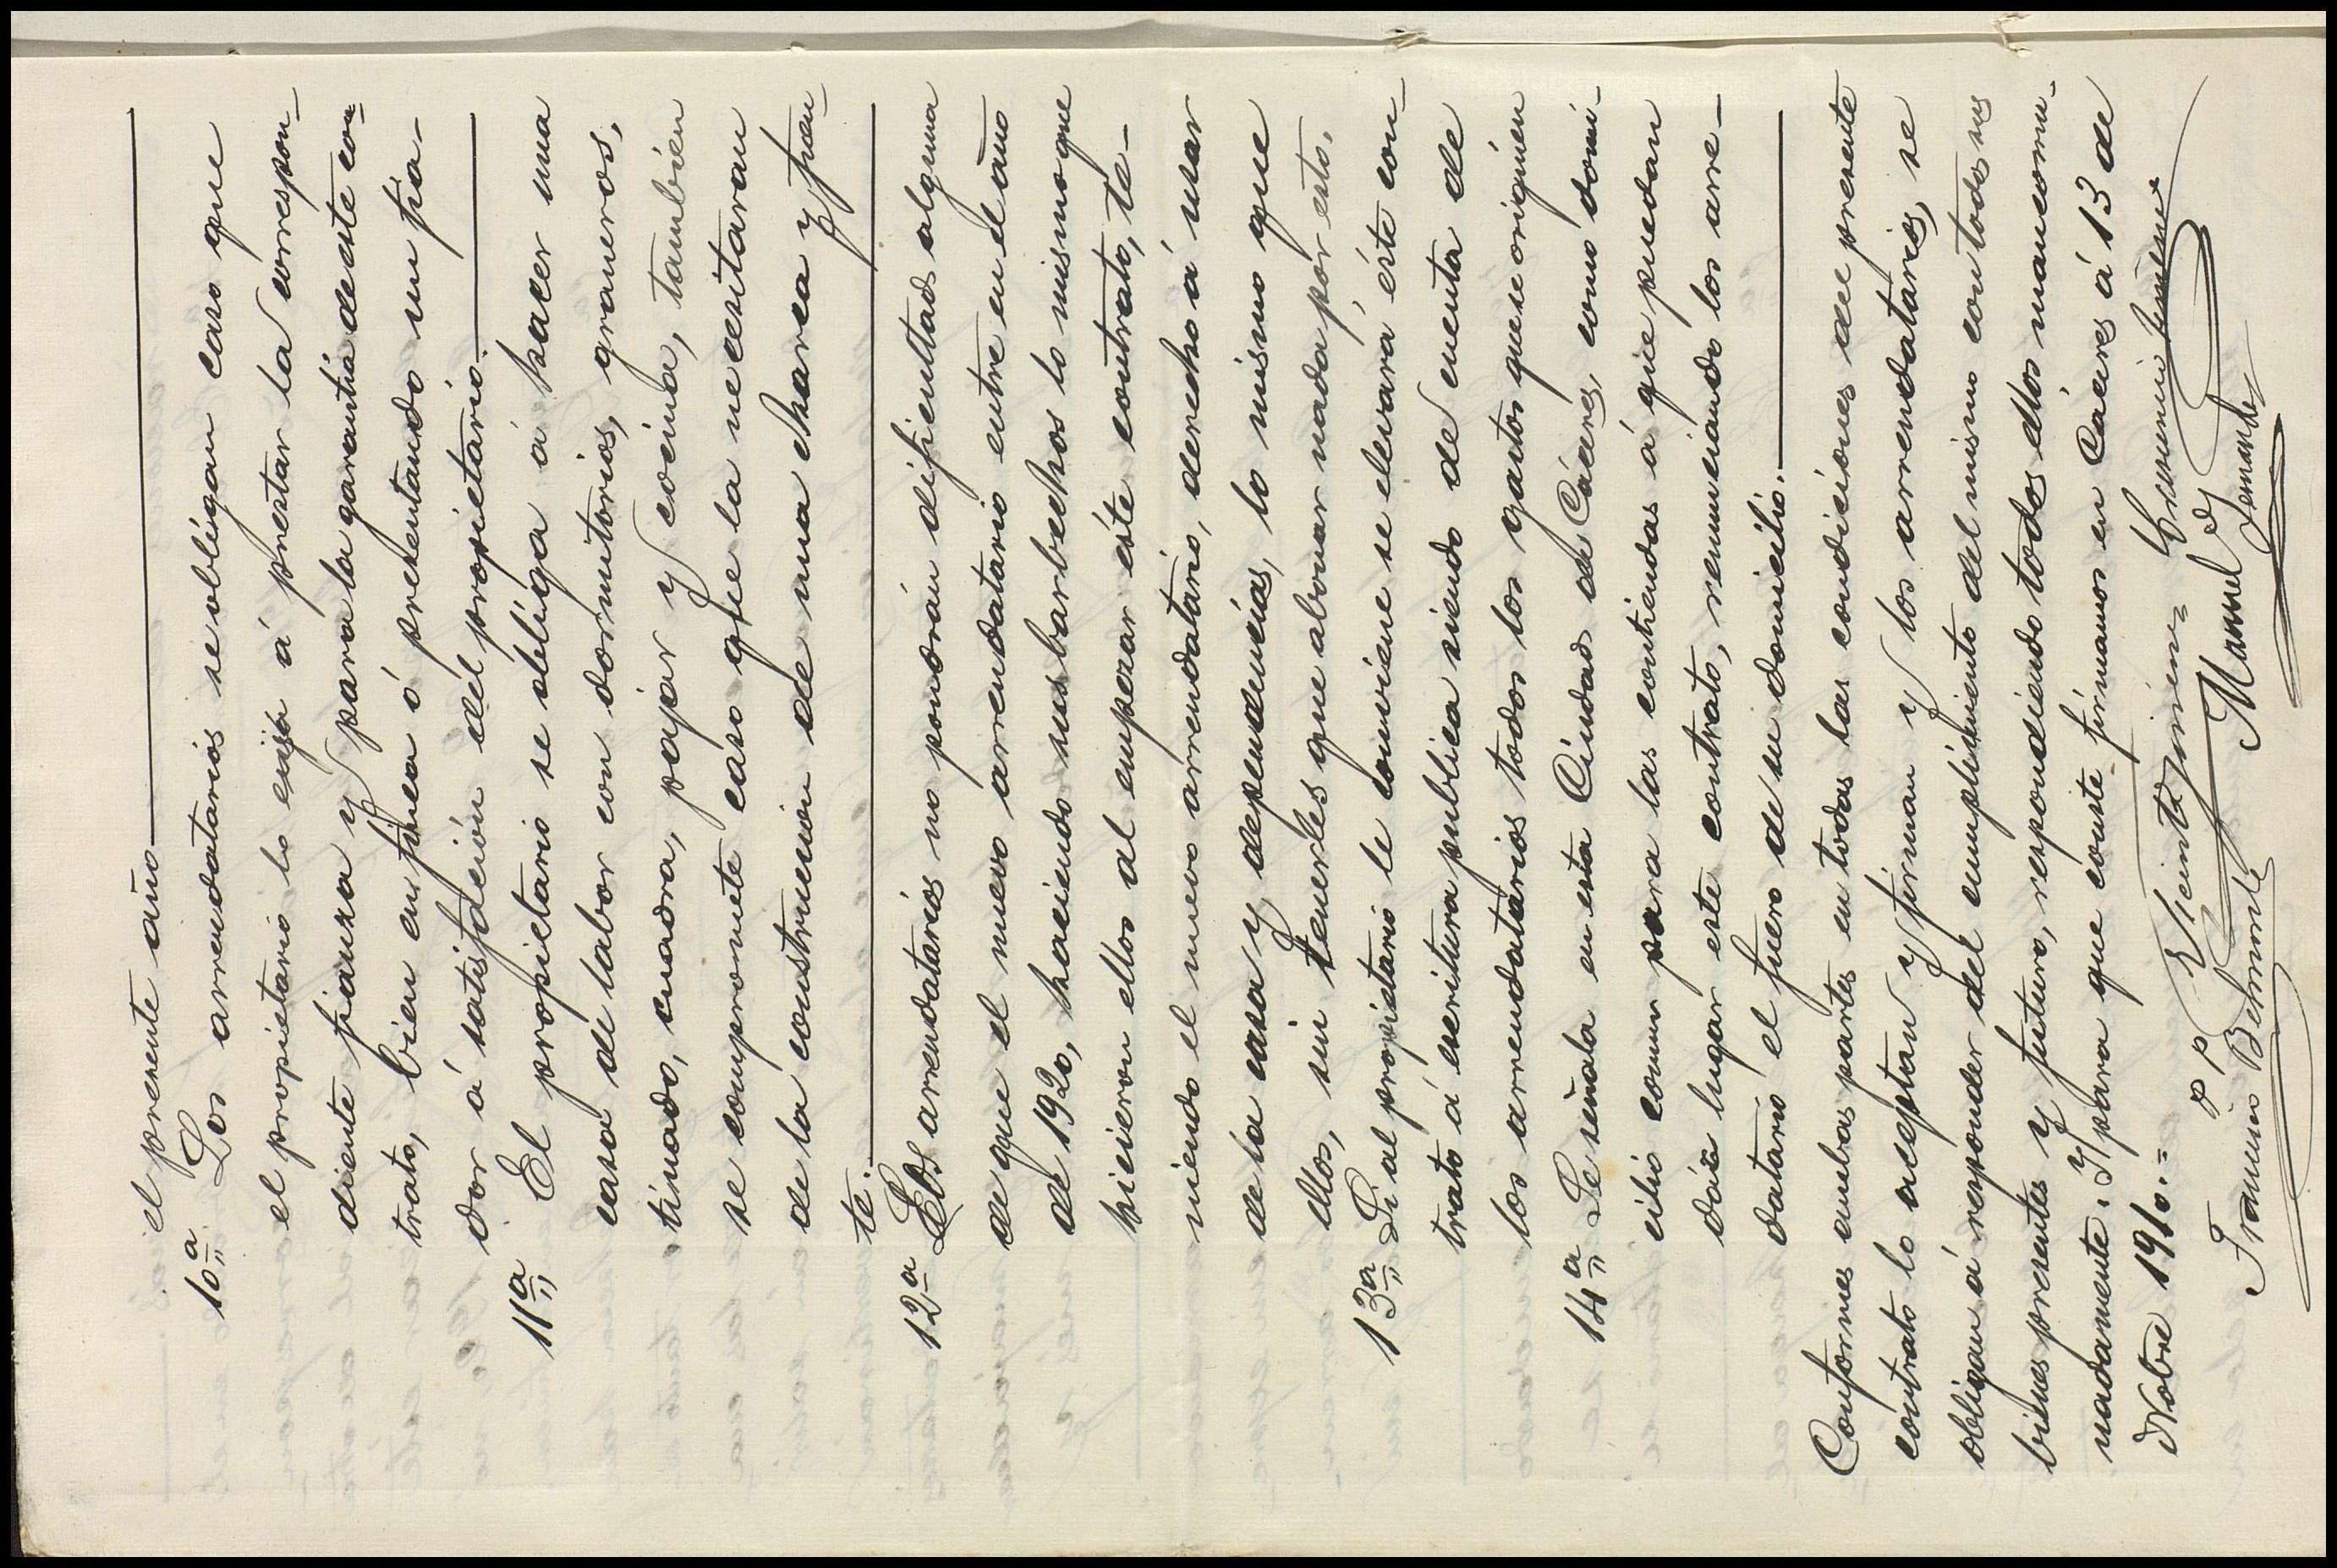 el presente año
10ª Los arrendatarios se obligan caso que
el propietario lo exija á prestar la correspon-
diente fianza y para la garantía de este con-
trato, bien en finca ó presentando un fia-
dor á satisfación del propietario.
11ª El propietario se obliga á hacer una
casa de labor con dormitorios, graneros,
tinado, cuadra, pajar y cocina, también
se compromete caso que la necesitaran
de la construcción de una charca y fuen-
te.
12ª Los arrendatarios no pondrán dificultad alguna
de que el nuevo arrendatario entre en el año
de 1920, haciendo sus barbechos lo mismo que
hicieron ellos al empezar éste contrato, te-
niendo el nuevo arrendatario, derecho á usar
de la casa y dependencias, lo mismo que
ellos, sin tenerles que abonar nada por esto.
13ª Si al propietario le conviene se elevará éste con-
trato á escritura publica siendo de cuenta de
los arrendatarios todos los gastos que se originen
14ª Se señala en esta Ciudad de Cáceres, como domi-
cilio comun para las contiendas á que puedan
dár lugar este contrato, renunciando los arre-
datario el fuero de su domicilio.
Conformes ambas partes en todas las condiciones del presente
contrato lo aceptan y firman y los arrendatarios, se
obligan á responder del cumplimiento del mismo con todos sus
bienes presentes y futuro, respondiendo todos ellos mancomu-
nadamente. Y para que conste firmamos en Cáceres á 13 de
Nobre 1910.=
P P Vicente Jimenez
Francisco Belmonte
Manuel